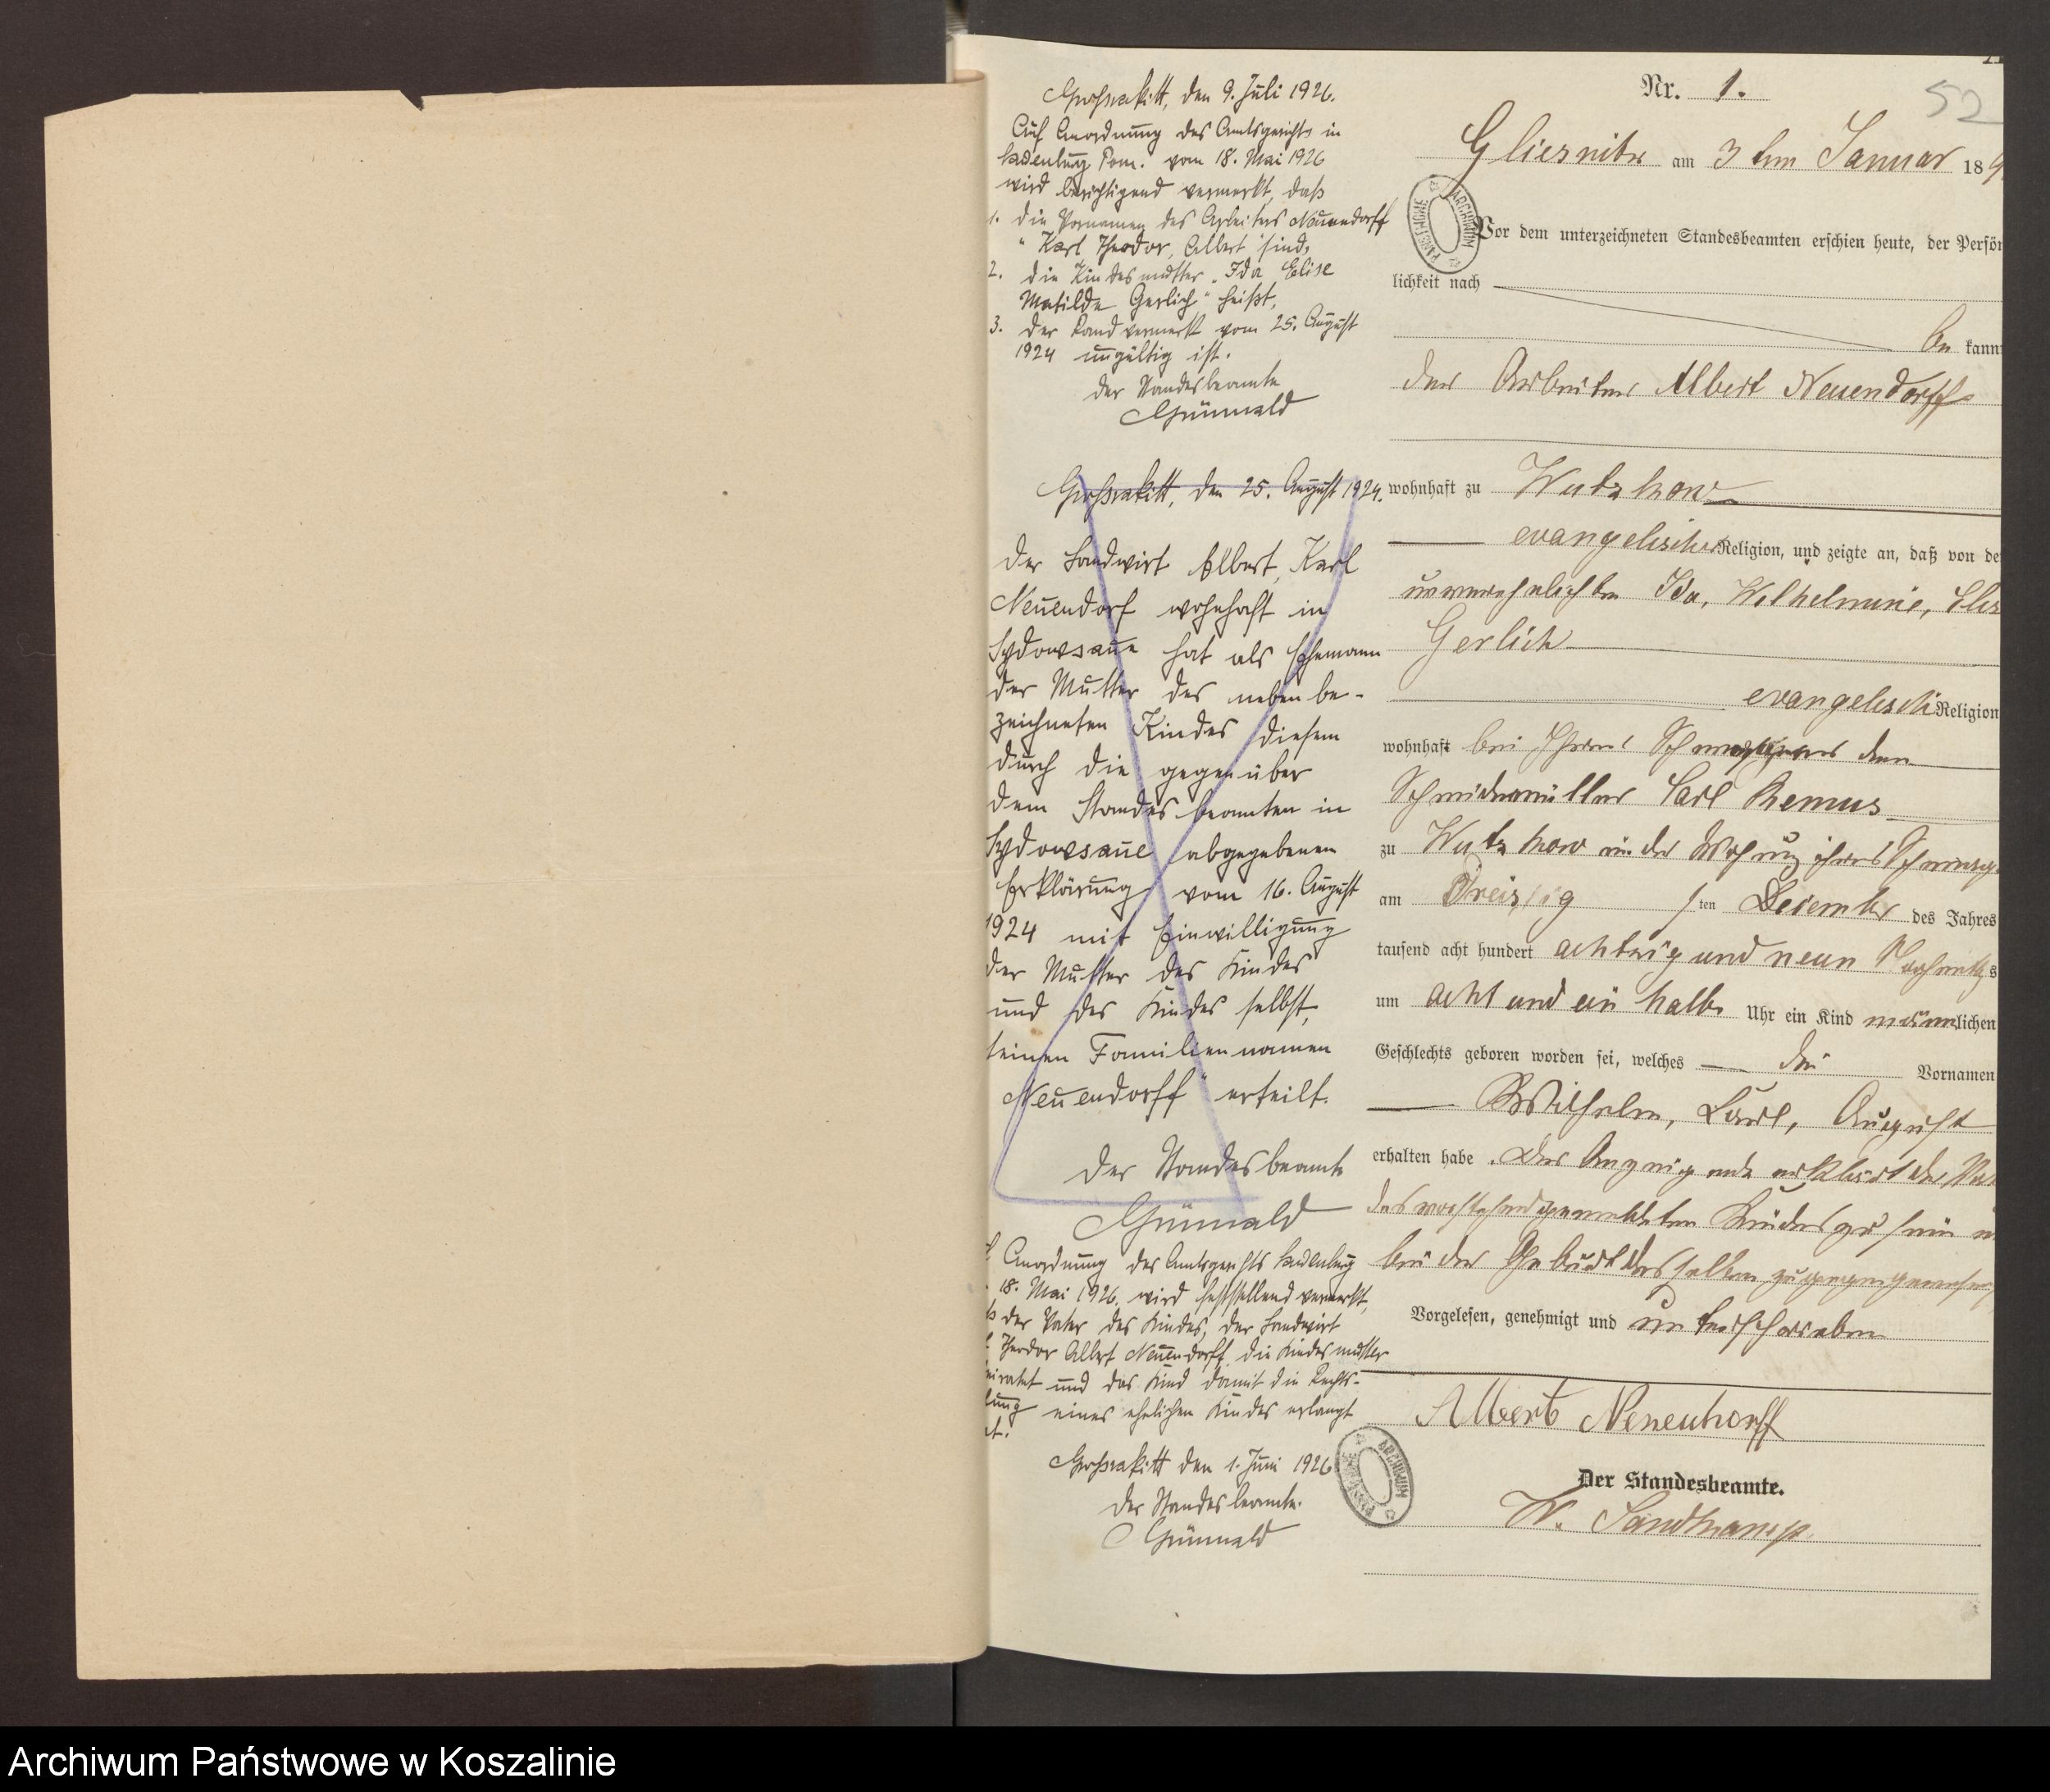 Großrakitt, den 9. Juli 1926.
Auf Anordnung des Amtsgerichts in
Lauenburg Pom. vom 18. Mai 1926
wird berichtigend vermerkt, daß
1. die Vornamen des Arbeiters Neuendorff
"Karl Theodor, Albert" sind,
2. die Kindesmutter "Ida Elise
Matilde Gerlich" heißt,
3. der Randvermerk vom 25. August
1924 ungültig ist.
Der Standesbeamte
Grünwald
Großrakitt, den 25. August 1924.
Der Landwirt Albert, Karl
Neuendorf wohnhaft in
Sydowsaue hat als Ehemann
der Mutter des nebenbe-
zeichneten Kindes diesem
durch die gegenüber
dem Standesbeamten in
Sydowsaue abgegebenen
Erklärung vom 16. August
1924 mit Einwilligung
der Mutter des Kindes
und des Kindes selbst,
seinen Familiennamen
"Neuendorff" erteilt.
Der Standesbeamte
Grünwald
Anordnung des Amtsgerichts Lauenburg
18. Mai 1926. wird feststellend vermerkt,
der Vater des Kindes, der Landwirt
Theodor Albert Neuendorff, die Kindesmutter
und das Kind damit die Rechts-
eines ehelichen Kindes erlangt
Großrakitt den 1. Juni 1926
Der Standesbeamte.
Grünwald
Nr. 1.
52
Gliesnitz am 3 ten Januar 189
Vor dem unterzeichneten Standesbeamten erschien heute, der Persön
lichkeit nach
be kannt
der Arbeiter Albert Neuendorff
wohnhaft zu Wutzkow
evangelischer Religion, und zeigte an, daß von de
unverehelichten Ida, Wilhelmine, Elis
Gerlich
evangelisch Religion
wohnhaft bei ihrem Schwager dem
Schneidemüller Carl Remus
zu Wutzkow in der Wohnung ihres Schwag
am Dreißig sten Dezember des Jahres
tausend acht hundert achtzig und neun Nachmittags
um acht und ein halb Uhr ein Kind männlichen
Geschlechts geboren worden sei, welches die Vornamen
Wilhelm, Carl, August
erhalten habe. Der Anzeigende erklärt der Vat
des vorstehend gemeldeten Kindes zu sein
bei der Geburt desselben zugegen gewesen
Vorgelesen, genehmigt und unterschrieben
Albert Neuendorff
Der Standesbeamte.
W. Sandkamp
ARCHIWUM PAŃSTWOWE
ARCHIWUM PAŃSTWOWE
Archiwum Państwowe w Koszalinie